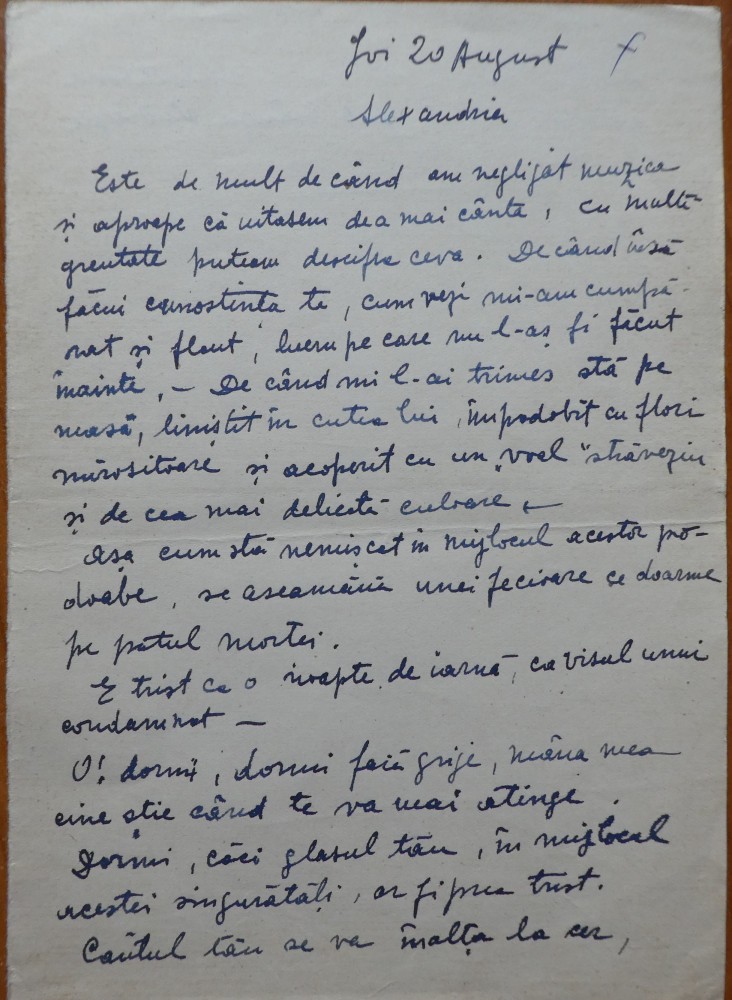 Joi 20 August
Alexandria
Este de mult de când am negligat muzica
și aproape că uitasem de a mai cânta, cu multă
greutate puteam descifra ceva. De când însă
făcui cunostința ta, cum vezi mi-am cumpă-
rat și flaut, lucru pe care nu l-aș fi făcut
înainte, — De când mi l-ai trimes stă pe
masă, liniștit în cutea lui, împodobit cu flori
mirositoare și acoperit cu un „voal" străveziu
și de cea mai delicată culoare —
Așa cum stă nemișcat în mijlocul acestor po-
doabe, se aseamănă unei fecioare ce doarme
pe patul mortei.
E trist ca o noapte de iarnă, ca visul unui
condamnat —
O! dormi, dormi fără grije, mâna mea
cine știe când te va mai atinge.
Dormi, căci glasul tău, în mijlocul
acestei singurătăți, ar fi prea trist.
Cântul tău se va înalța la cer,